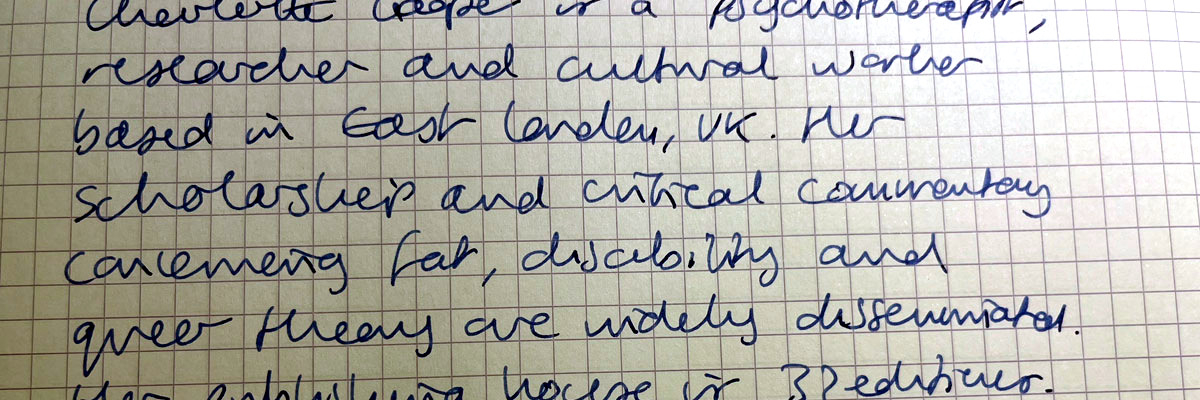 Charlotte Cooper is a psychotherapist,
researcher and cultural worker
based in East London, UK. Her
scholarship and critical commentary
concerning fat, disability and
queer theory are widely disseminated.
Her publishing house is